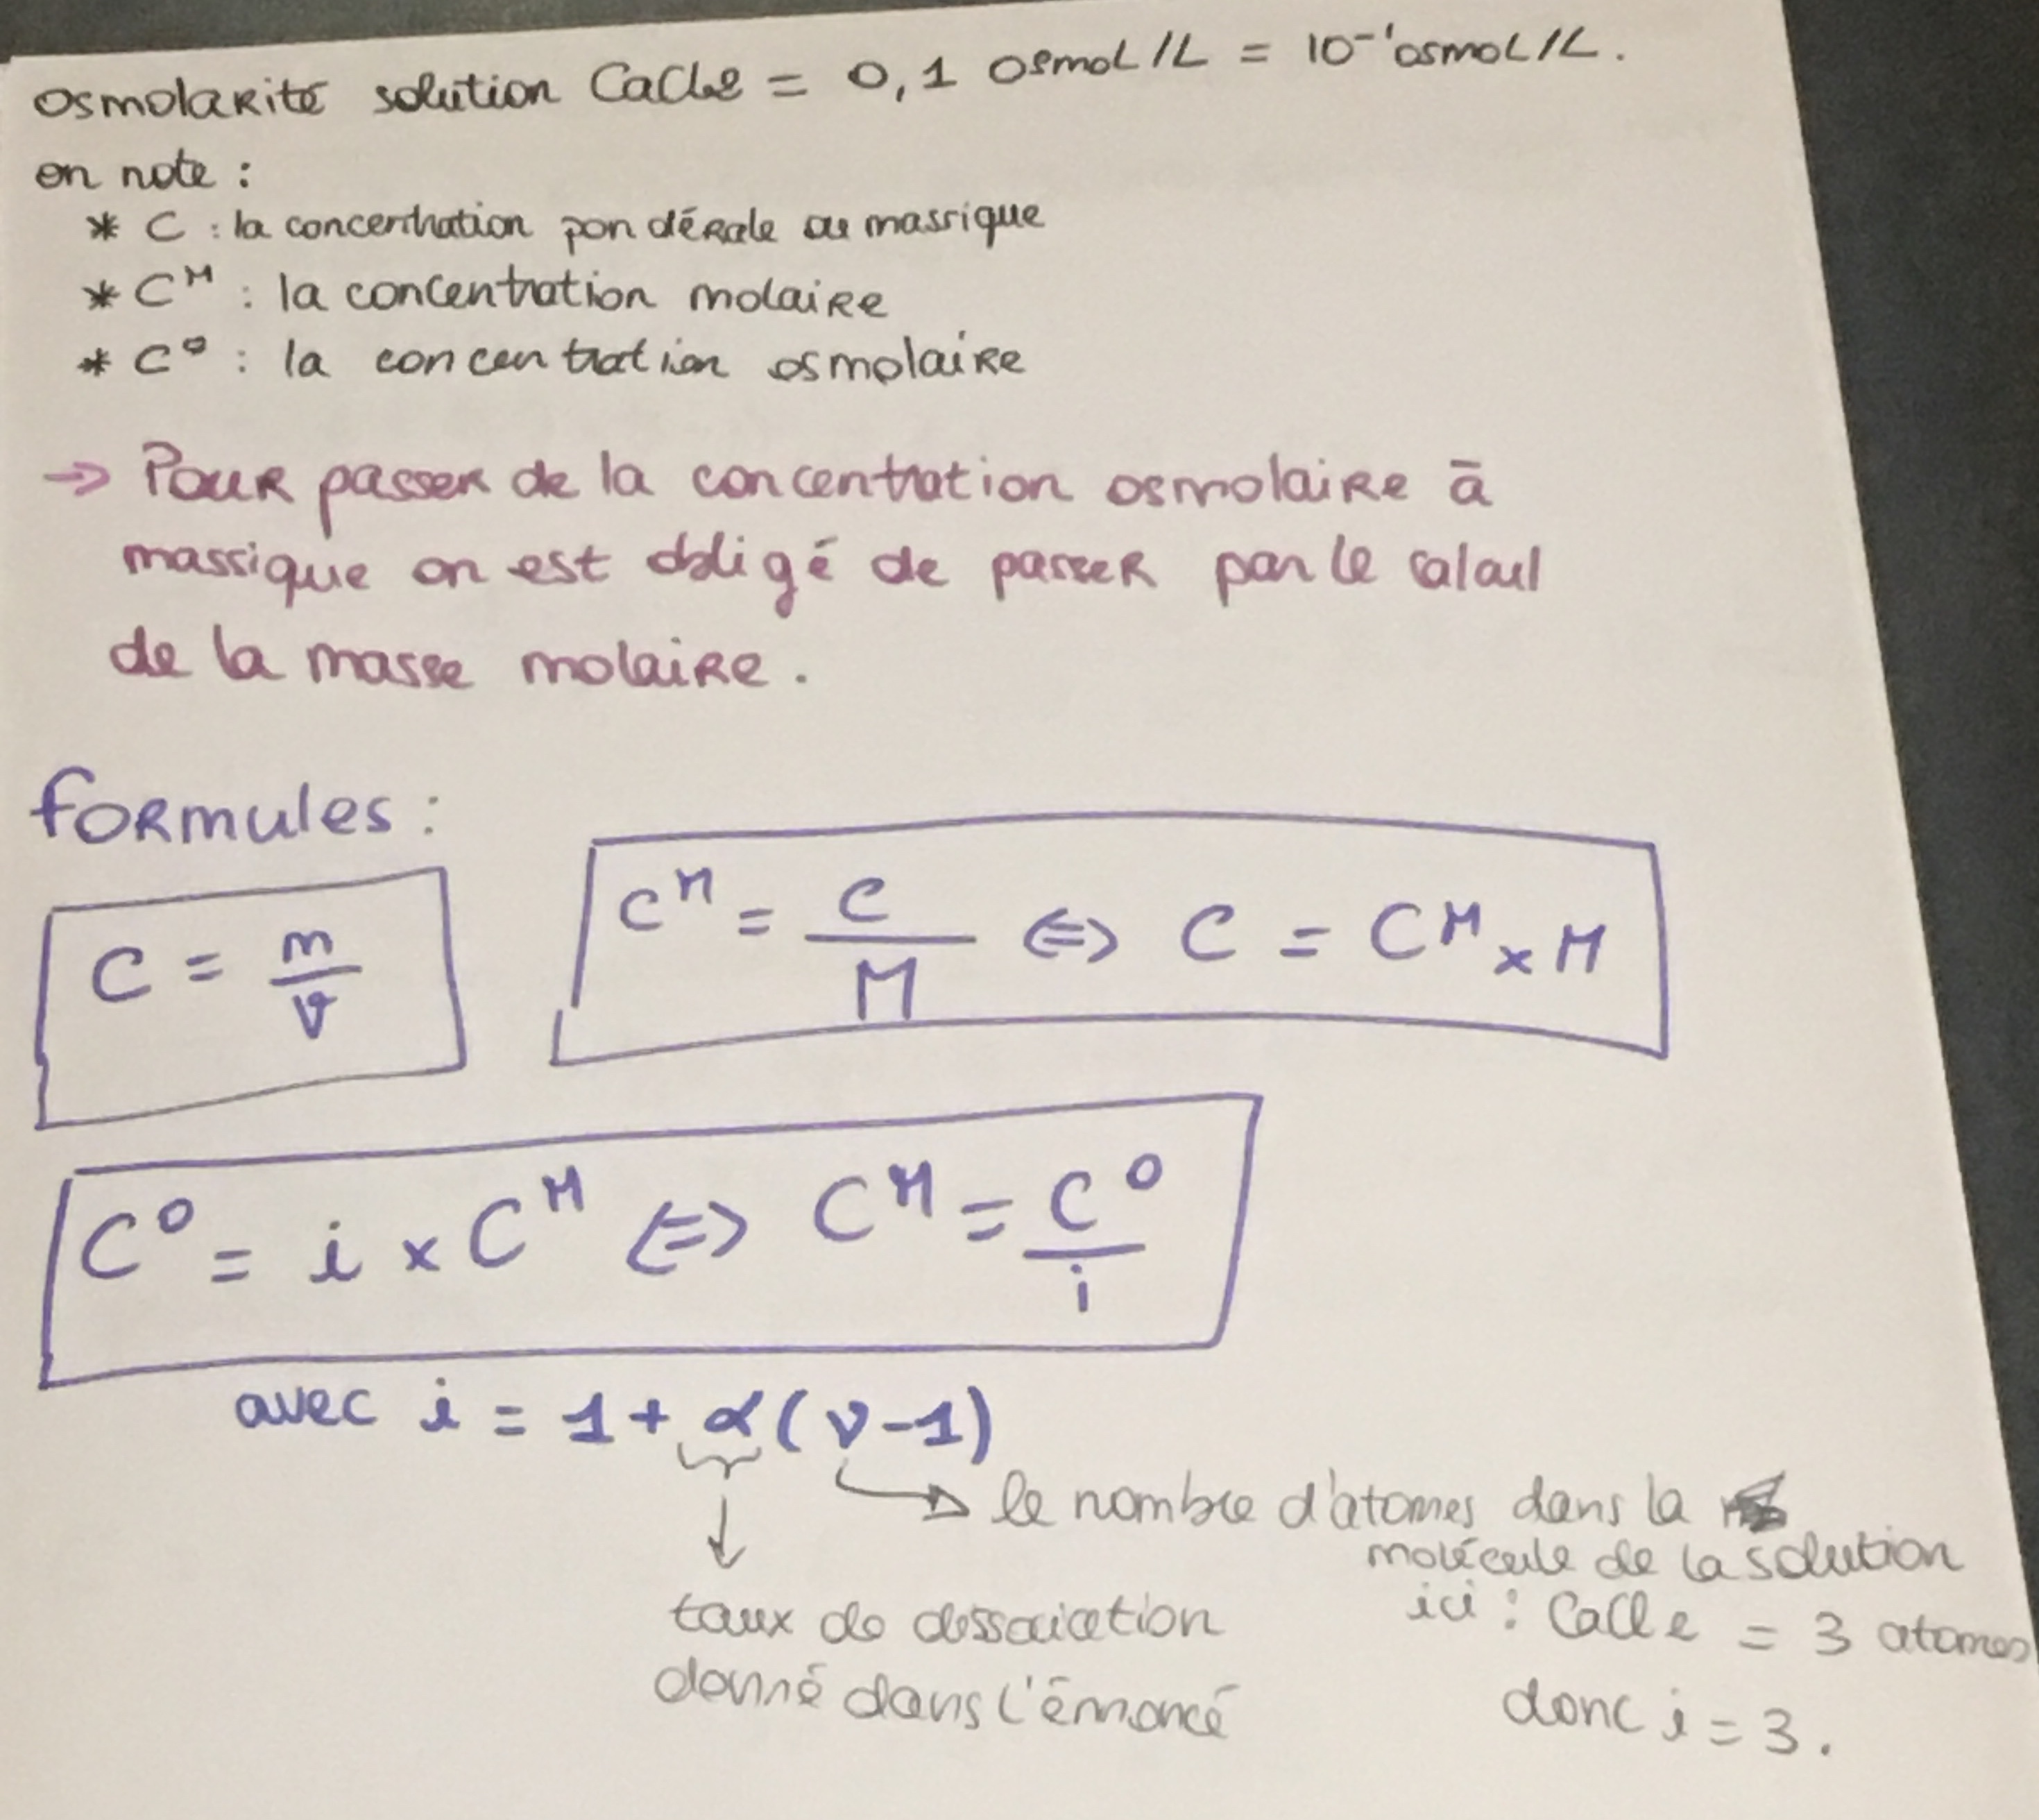 Osmolarité solution CaCl2 = 0,1 osmol/L = 10⁻¹ osmol/L.
on note :
* C : la concentration pondérale ou massique
* Cᴹ : la concentration molaire
* C° : la concentration osmolaire
→ Pour passer de la concentration osmolaire à
massique on est obligé de passer par le calcul
de la masse molaire.
formules :
C = m/V
Cᴹ = C/M ⇔ C = Cᴹ x M
C° = i x Cᴹ ⇔ Cᴹ = C°/i
avec i = 1 + α(ν-1)
le nombre d'atomes dans la
molécule de la solution
ici : CaCl2 = 3 atomes
donc i = 3.
taux de dissociation
donné dans l'énnoncé